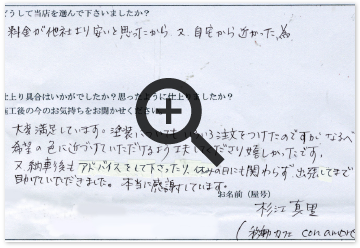 どうして当店を選んで下さいましたか？
料金が他社より安いと思ったから。又、自宅から近かった為
仕上り具合はいかがでしたか？思ったように仕上りましたか？
施工後の今のお気持ちをお聞かせください
大変満足しています。塗装についても 注文をつけたのですが、なるべく
希望の色に近づけていただけるよう工夫してくださり嬉しかったです。
又、納車後もアドバイスをして下さったり、休みの日にも関わらず、出張してまで
助けていただきました。本当に感謝しています。
お名前（屋号）
杉江 真里
（移動カフェ con amore